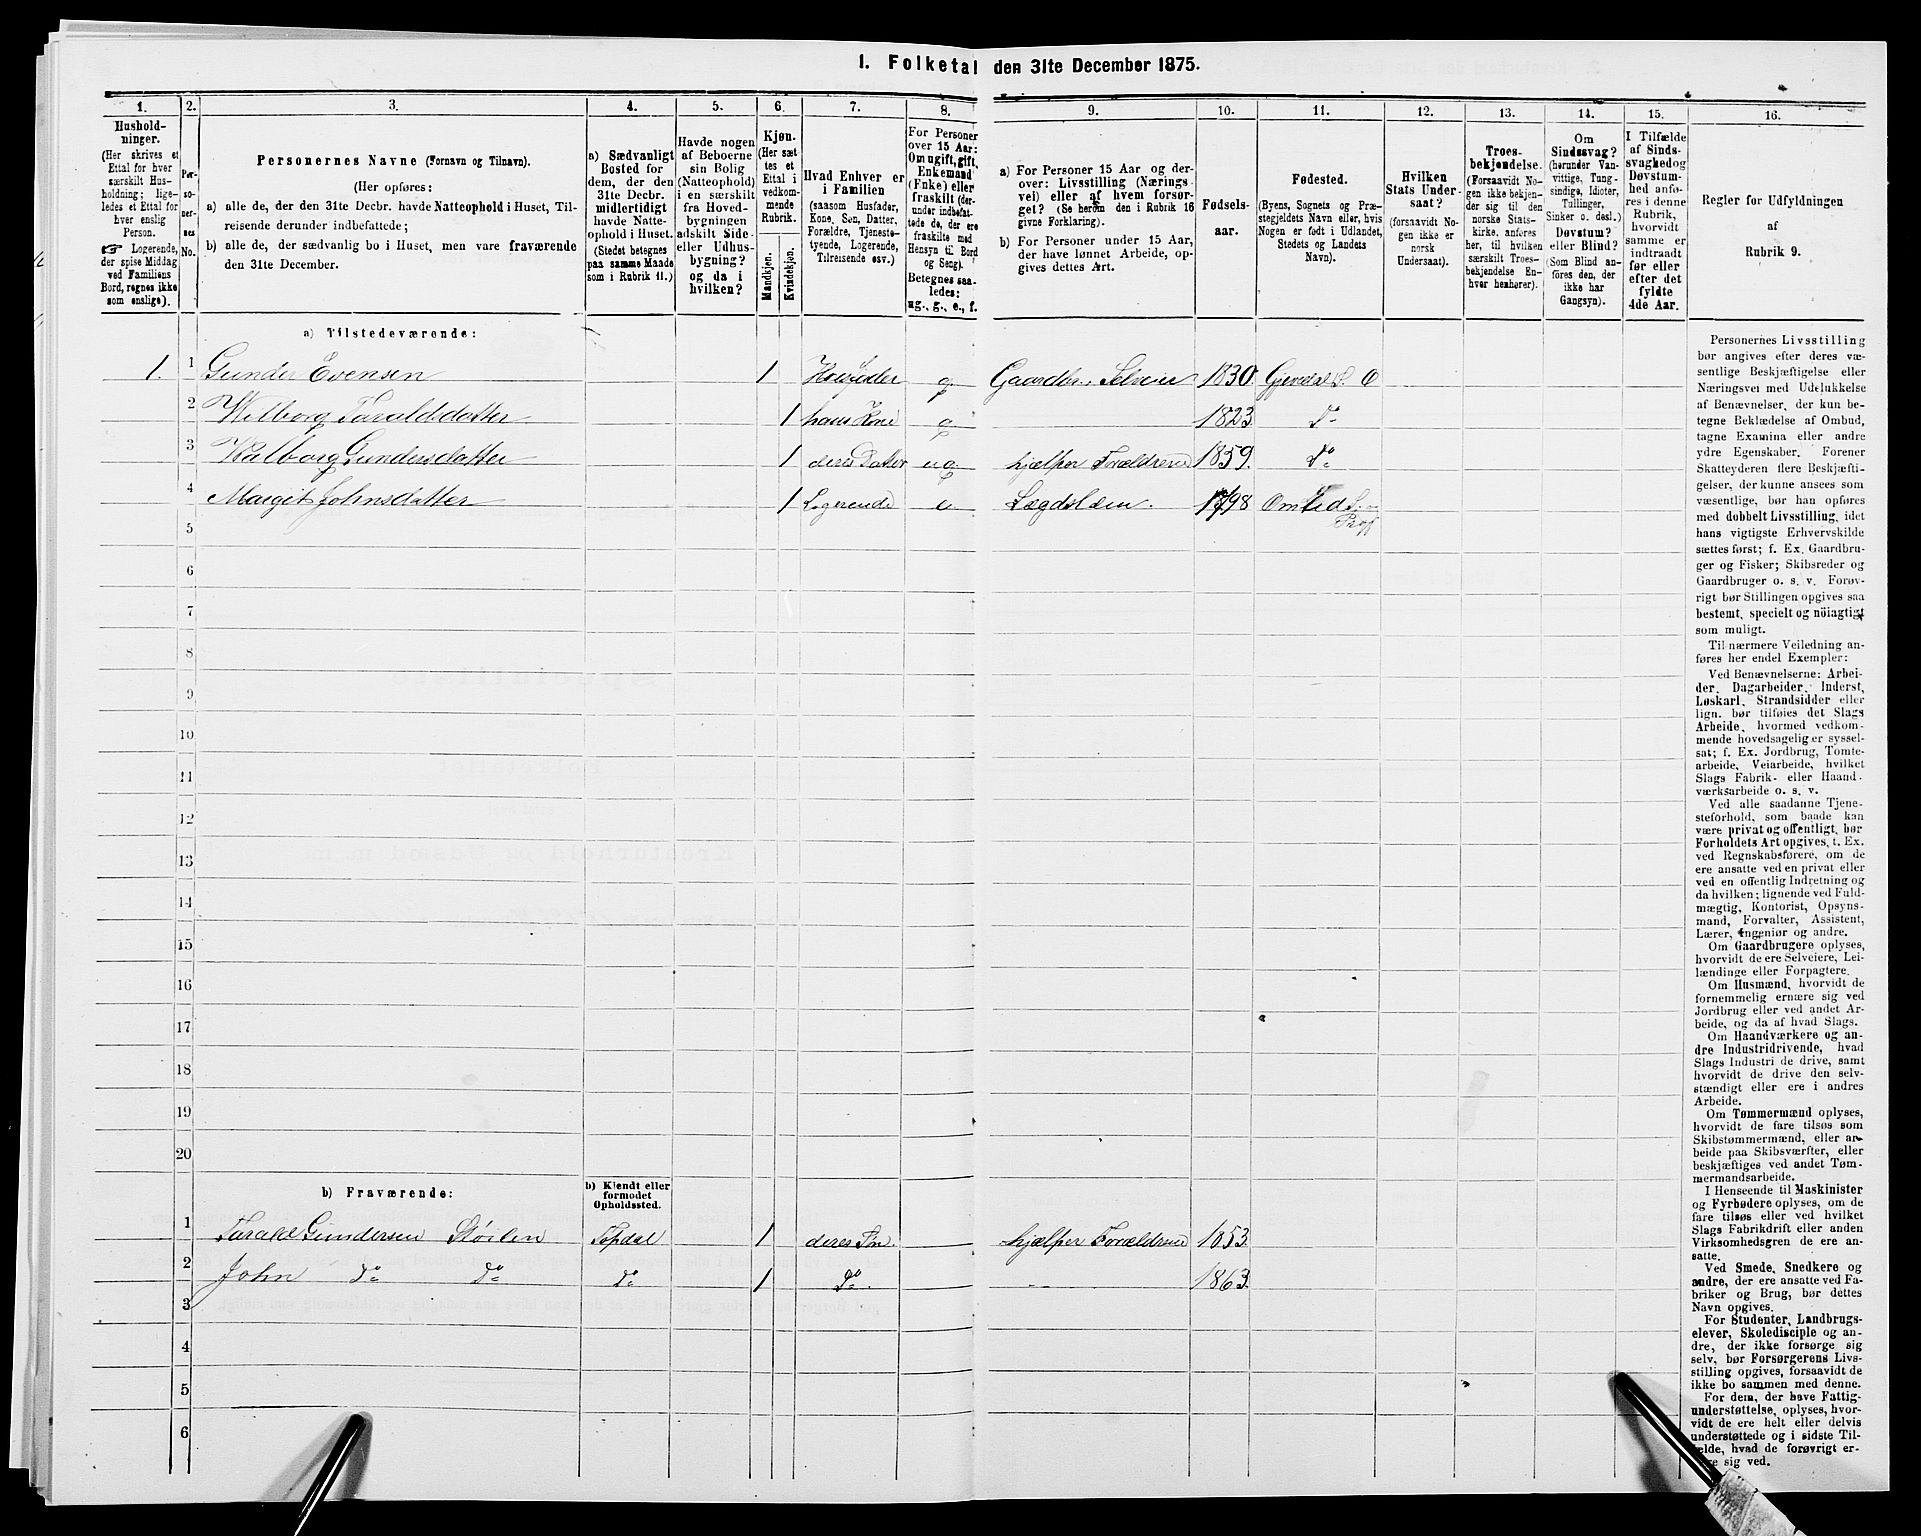 1. Folketal den 31te December 1875.
1. 2. 3. 4. 5. 6. 7. 8. 9. 10. 11. 12. 13. 14. 15. 16.
Hushold-
ninger.
(Her skrives et
Ettal for hver
særskilt Hus-
holdning; lige-
ledes et Ettal for
hver enslig
Person.
☞ Logerende,
der spise Middag
ved Familiens
Bord, regnes ikke
som enslige).
Per-
so-
ner-
nes
No.
Personernes Navne (Fornavn og Tilnavn).
(Her opføres:
a) alle de, der den 31te Decbr. havde Natteophold i Huset, Til-
reisende derunder indbefattede;
b) alle de, der sædvanlig bo i Huset, men vare fraværende
den 31te December.
a) Sædvanligt
Bosted for
dem, der den
31te Decbr.
midlertidigt
havde Natte-
ophold i Huset.
(Stedet betegnes
paa samme Maade
som i Rubrik 11.)
Havde nogen
af Beboerne
sin Bolig
(Natteophold)
i en særskilt
fra Hoved-
bygningen
adskilt Side-
eller Udhus-
bygning?
og da i
hvilken?
Kjøn.
(Her sæt
tes et
Ettal i
vedkom-
mende
Rubrik.
Mandkjøn.
Kvindekjøn.
Hvad Enhver er
i Familien
(saasom Husfader,
Kone, Søn, Datter,
Forældre, Tjeneste-
tyende, Logerende,
Tilreisende osv.)
For Personer
over 15 Aar:
Om ugift, gift,
Enkemand
(Enke) eller
fraskilt (der-
under indbefat-
tede de, der ere
fraskilte med
Hensyn til Bord
og Seng).
Betegnes saa-
ledes:
ug., g., e., f.
a) For Personer 15 Aar og der-
over: Livsstilling (Nærings-
vei) eller af hvem forsør-
get? (Se herom den i Rubrik 16
givne Forklaring).
b) For Personer under 15 Aar,
der have lønnet Arbeide, op-
gives dettes Art.
Fødsels-
aar.
Fødested.
(Byens, Sognets og Præ-
stegjeldets Navn eller, hvis
Nogen er født i Udlandet,
Stedets og Landets
Navn).
Hvilken
Stats Under-
saat?
(forsaavidt No-
gen ikke er
norsk
Undersaat).
Troes-
bekjendelse.
(Forsaavidt No-
gen ikke bekjen-
der sig til den
norske Stats-
kirke, anføres
her, til hvilken
særskilt Troes-
bekjendelse En-
hver henhører).
Om
Sindssvag?
(herunder Van-
vittige, Tung-
sindige, Idioter,
Tullinger,
Sinker o. desl.)
Døvstum?
eller Blind?
(Som Blind an-
føres den, der
ikke har
Gangsyn).
I Tilfælde
af Sinds-
svaghed og
Døvstum-
hed anfø-
res i denne
Rubrik,
hvorvidt
samme er
indtraadt
før eller
efter det
fyldte
4de Aar.
Regler for Udfyldningen
af
Rubrik 9.
a) Tilstedeværende:
1. 1 Gunder Evensen 1 Husfader g. Gaardbr., Selveier 1830 Gjevedal S. O
2 Wilborg Taraldsdatter 1 hans Kone g 1823 do
3 Walborg Gundersdatter 1 deres Datter ug. hjælper Forældrene 1859. do
4 Margit Johnsdatter 1 Logerende e. Lægdslem. 1798 Omlid S. og
Præj
5
6
7
8
9
10
11
12
13
14
15
16
17
18
19
20
b) Fraværende:
b) Kjendt eller
formodet
Opholdssted.
1 Tarald Gundersen Støilen Topdal 1 deres Søn. hjælper Forældrene 1853
2 John do do do 1 do 1863
3
4
5
6
Personernes Livsstilling
bør angives efter deres væ-
sentlige Beskjæftigelse eller
Næringsvei med Udelukkelse
af Benævnelser, der kun be-
tegne Beklædelse af Ombud,
tagne Examina eller andre
ydre Egenskaber. Forener
Skatteyderen flere Beskjæfti-
gelser, der kunne ansees som
væsentlige, bør han opføres
med dobbelt Livsstilling, idet
hans vigtigste Erhvervskilde
sættes først; f. Ex. Gaardbru-
ger og Fisker; Skibsreder og
Gaardbruger o. s. v. Forøv-
rigt bør Stillingen opgives saa
bestemt, specielt og nöiagtigt
som muligt.
Til nærmere Veiledning an-
føres her endel Exempler:
Ved Benævnelserne: Arbei-
der, Dagarbeider, Inderst,
Løskarl, Strandsidder eller
lign. bør tilføies det Slags
Arbeide, hvormed vedkom-
mende hovedsagelig er syssel-
sat; f. Ex. Jordbrug, Tomte-
arbeide, Veiarbeide, hvilket
Slags Fabrik- eller Haand-
værksarbeide o. s. v.
Ved alle saadanne Tjene-
steforhold, som baade kan
være privat og offentligt, bør
Forholdets Art opgives, t. Ex.
ved Regnskabsførere, om de
ere ansatte ved en privat eller
ved en offentlig Indretning og
da hvilken; lignende ved Fuld-
mægtig, Kontorist, Opsyns-
mand, Forvalter, Assistent,
Lærer, Ingeniør og andre.
Om Gaardbrugere oplyses,
hvorvidt de ere Selveiere, Lei-
lændinge eller Forpagtere.
Om Husmænd, hvorvidt de
fornemmelig ernære sig ved
Jordbrug eller ved andet Ar-
beide, og da af hvad Slags.
Om Haandværkere og an-
dre Industridrivende, hvad
Slags Industri de drive, samt
hvorvidt de drive den selv-
stændigt eller ere i andres
Arbeide.
Om Tømmermænd oplyses,
hvorvidt de fare tilsøs som
Skibstømmermænd, eller ar-
beide paa Skibsværfter, eller
beskjæftiges ved andet Tøm-
mermandsarbeide.
I Henseende til Maskinister
og Fyrbødere oplyses, om de
fare tilsøs eller ved hvilket
Slags Fabrikdrift eller anden
Virksomhedsgren de ere an-
satte.
Ved Smede, Snedkere og
andre, der ere ansatte ved Fa-
briker og Brug, bør dettes
Navn opgives.
For Studenter, Landbrugs-
elever, Skoledisciple og an-
dre, der ikke forsørge sig
selv, bør Forsørgerens Livs-
stilling opgives, forsaavidt de
ikke bo sammen med denne.
For dem, der have Fattig-
understøttelse, oplyses, hvor-
vidt de ere helt eller delvis
understøttede og i sidste Til-
fælde, hvad de forøvrigt er-
nære sig ved.